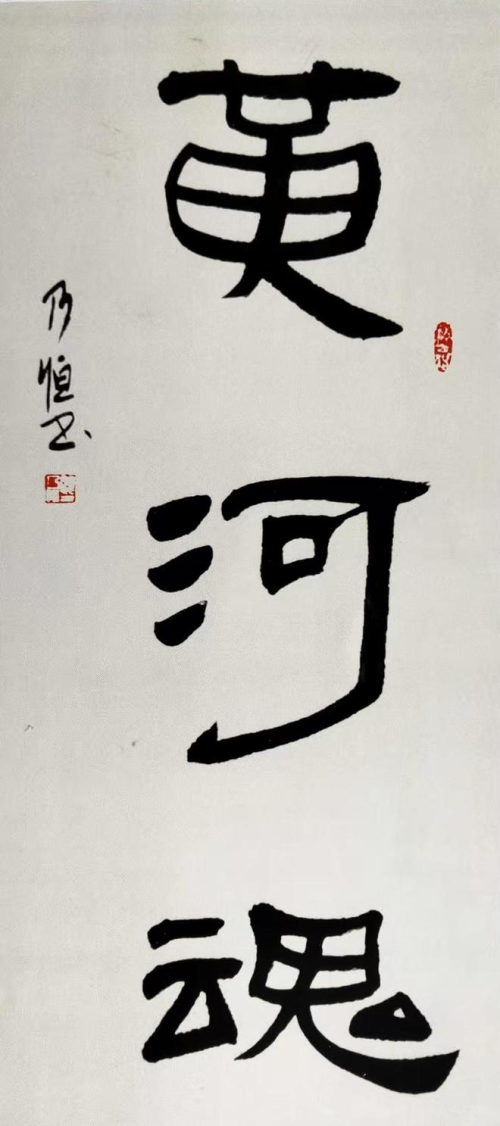 黄河魂
乃恒书